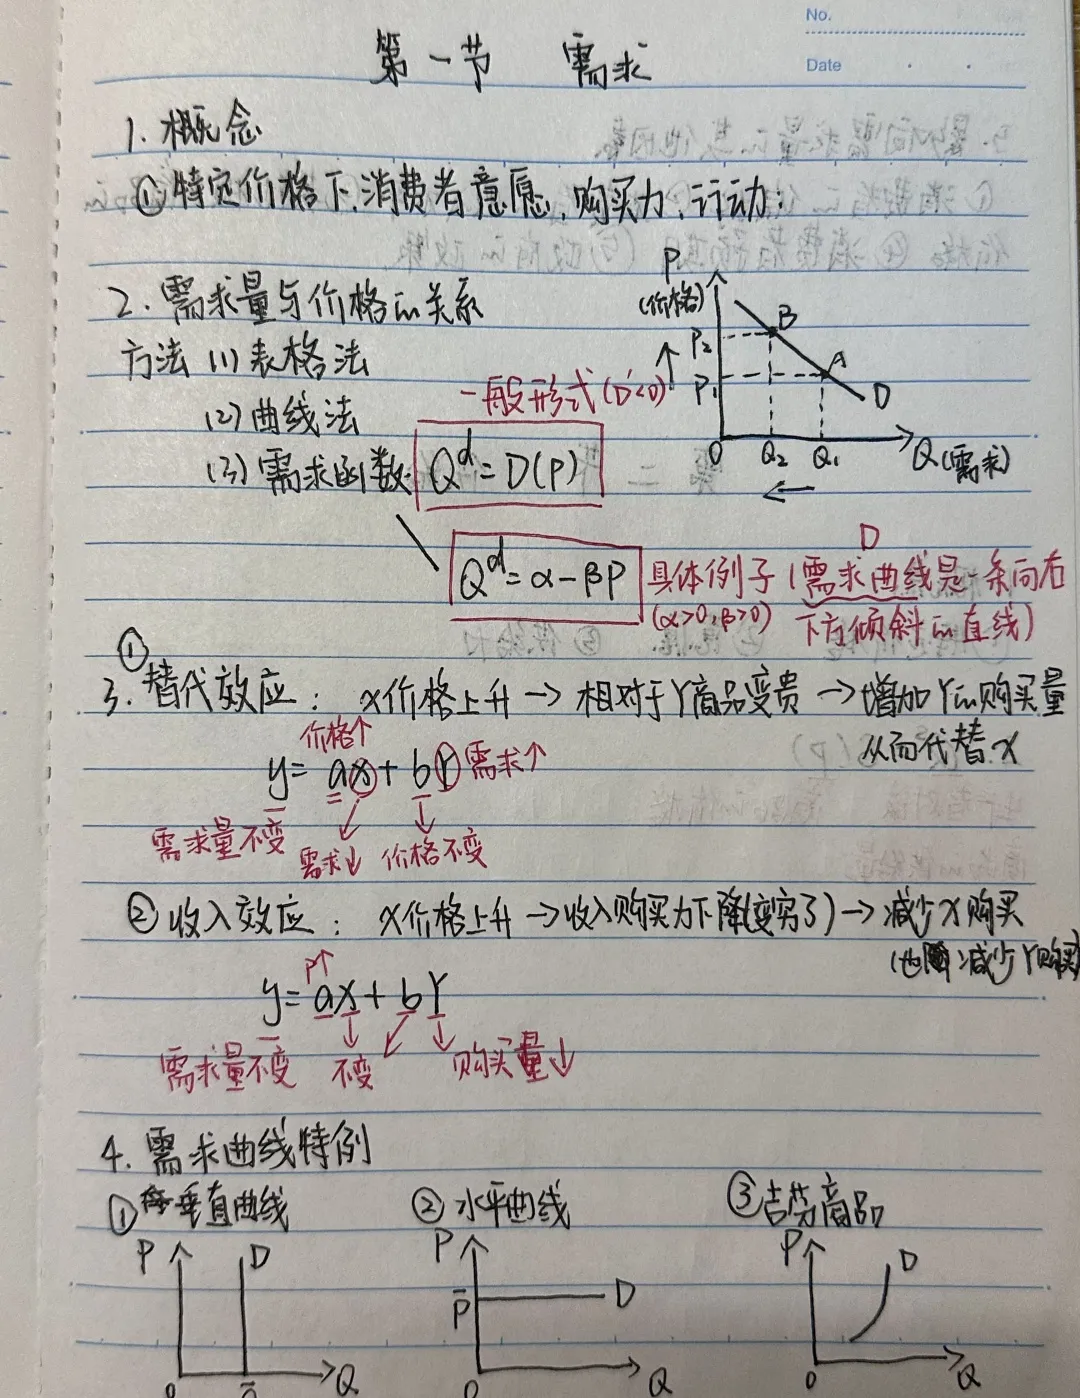 No.
Date
第一节 需求
1. 概念
① 特定价格下,消费者意愿,购买力,行动;
2. 需求量与价格的关系
方法 (1) 表格法
(2) 曲线法
(3) 需求函数: Q^d = D(P)
一般形式 (D'<0)
P
(价格)
P₂
P₁
B
A
D
O Q₂ Q₁ Q(需求)
Q^d = α - βP 具体例子 (需求曲线是一条向右
D
(α>0, β>0) 下方倾斜的直线)
3. ①替代效应: X价格上升 → 相对于Y商品变贵 → 增加Y的购买量
从而代替X
价格↑
y = ax + bY 需求↑
需求量不变 需求↓ 价格不变
② 收入效应: X价格上升 → 收入购买力下降(变穷了) → 减少X购买
(也 减少Y购买)
P↑
y = ax + bY
需求量不变 不变 购买量↓
4. 需求曲线特例
① 垂直曲线 ② 水平曲线 ③ 吉芬商品
P D
O Q
P
P̄ D
O Q
P D
O Q